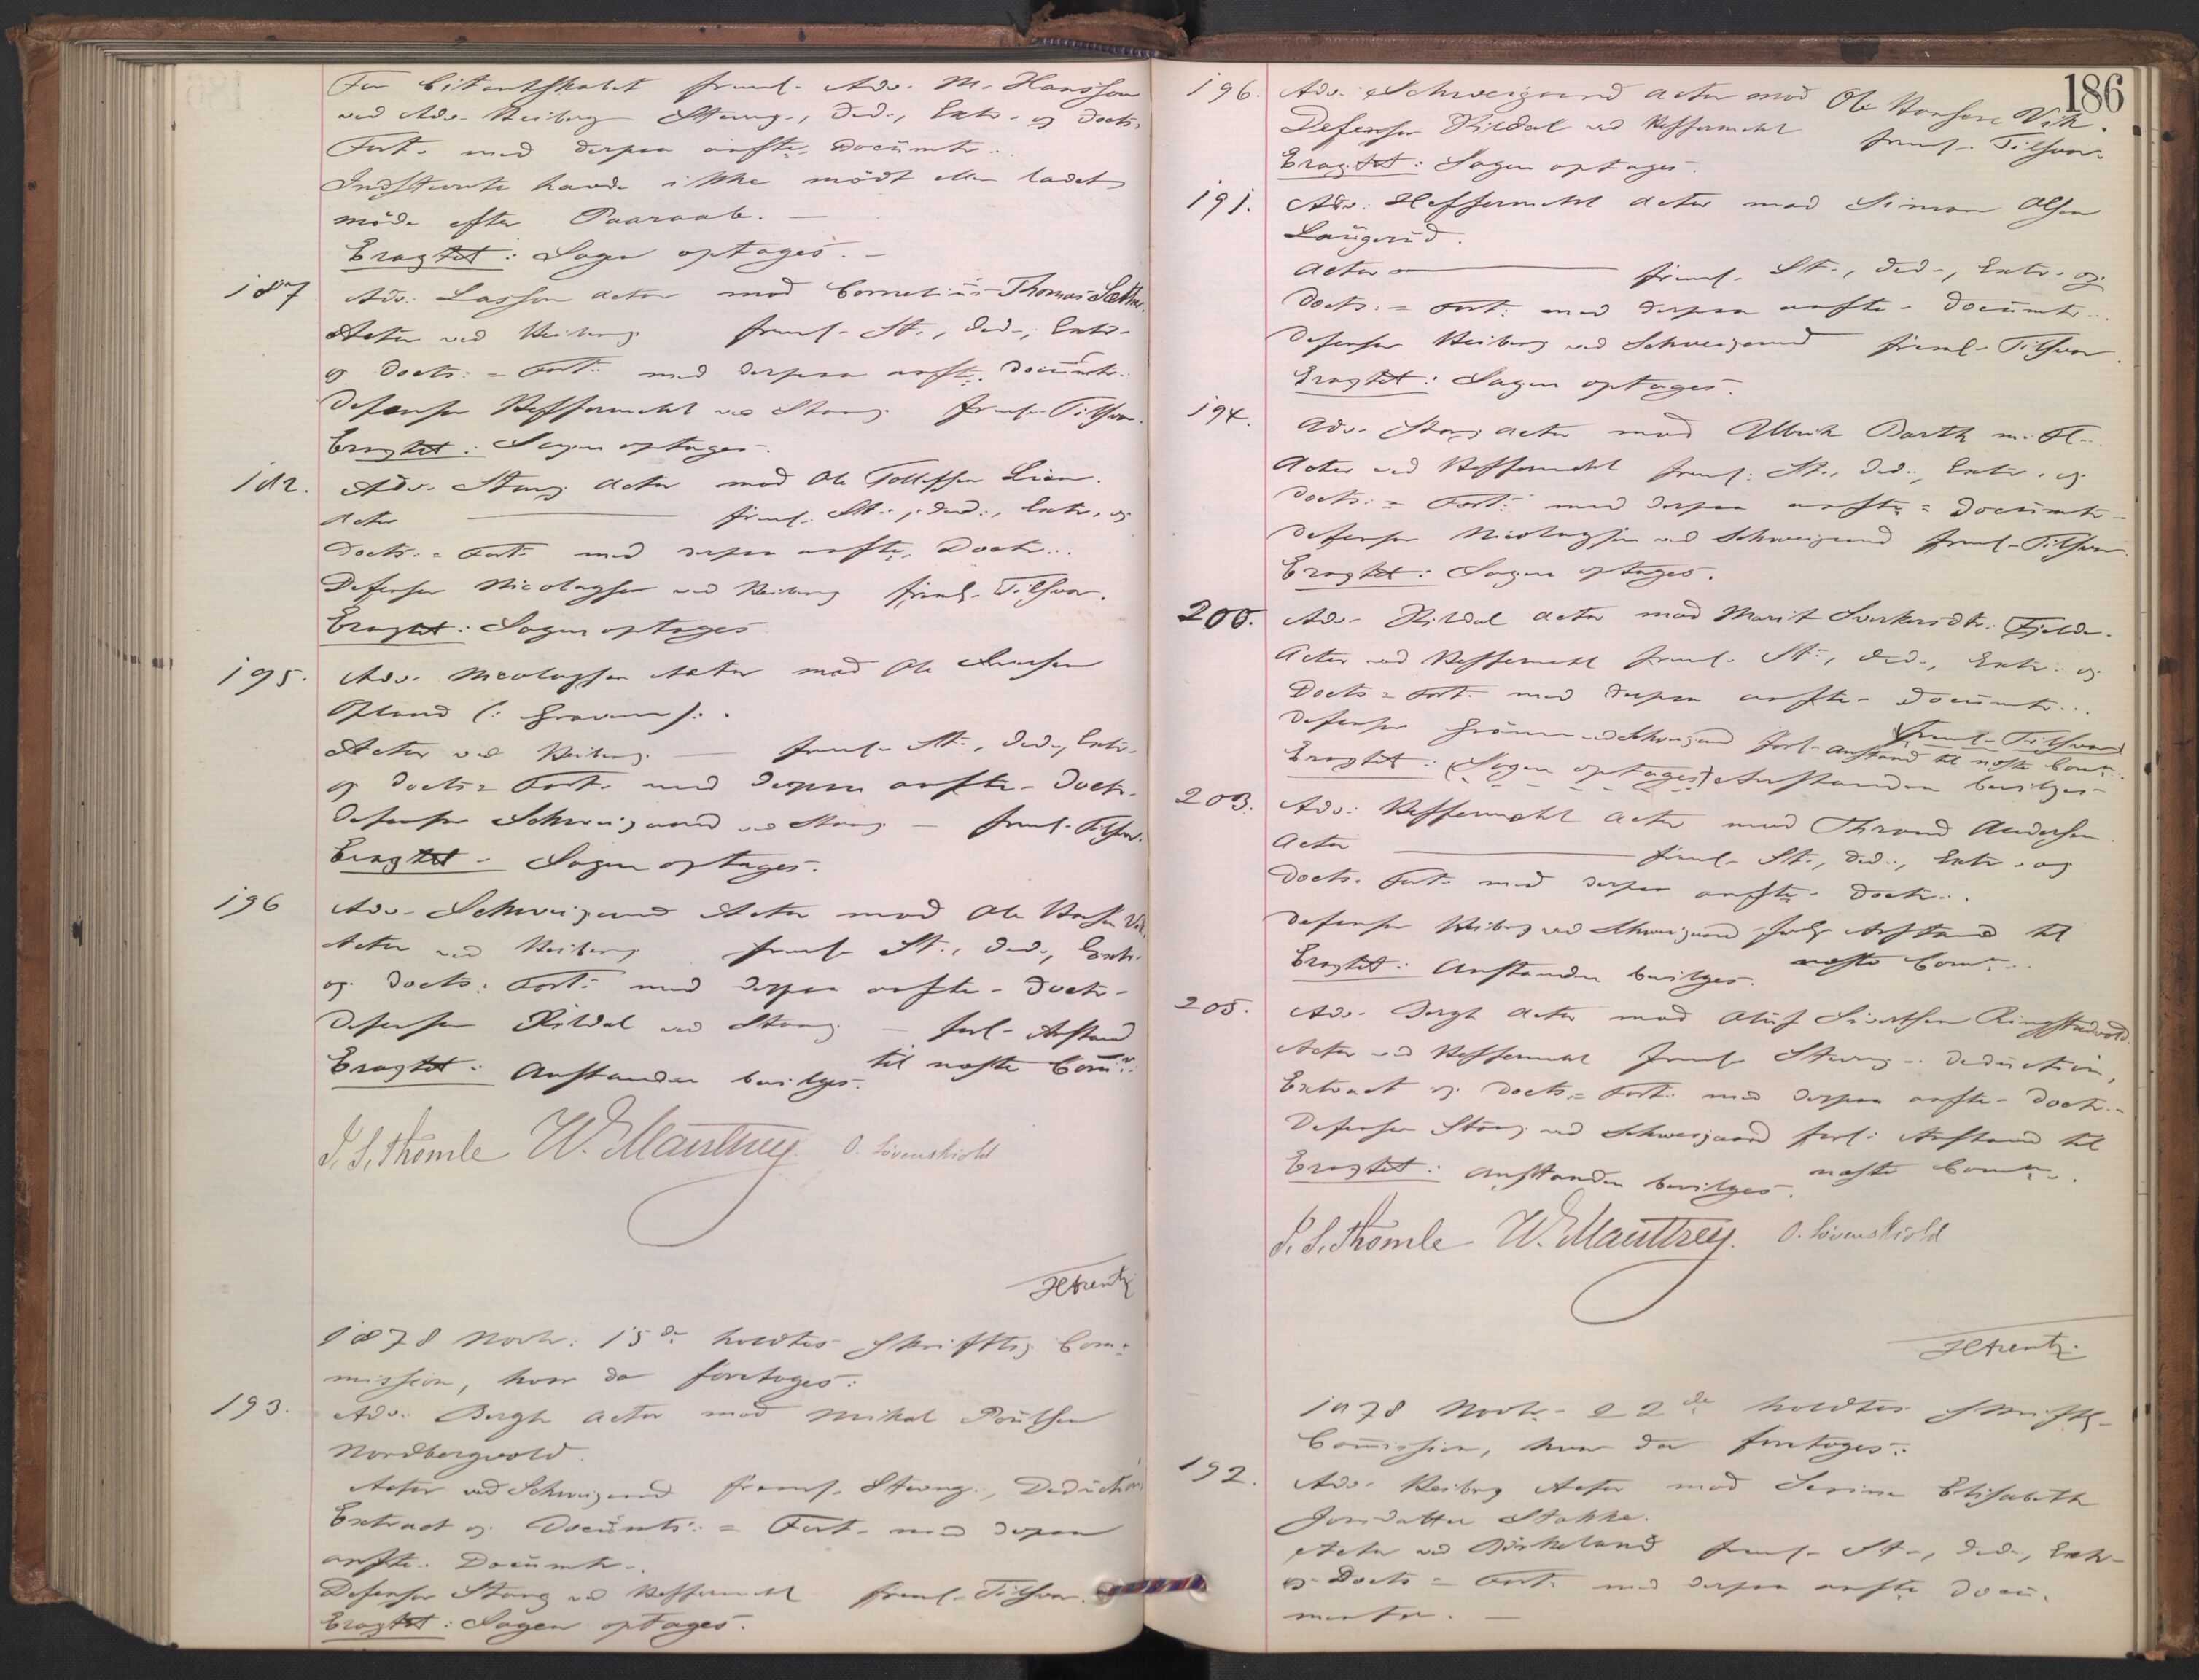 For Citantskabet freml. Adv. M. Hansson
ved Adv. Heiberg Stevng., Ded., Extr. og Docts.
Fort. med derpaa anførte Documtr.
Indstevnte havde ikke mödt eller ladet
möde efter Paaraab. —
Eragtet: Sagen optages. —
187 Adv. Lasson Actor mod Cornelius Thomas Sæthre.
Actor ved Heiberg freml. St., Ded., Extr.
og Docts. = Fort. med derpaa anførte Documtr.
Defensor Heffermehl ved Stang freml. Tilsvar.
Eragtet: Sagen optages.
182. Adv. Stang Actor mod Ole Tollefsen Lien.
Actor — freml. St., Ded., Extr. og
Docts. = Fort. med derpaa anførte Doctr.
Defensor Nicolaysen ved Heiberg freml. Tilsvar.
Eragtet: Sagen optages
195. Adv. Nicolaysen Actor mod Ole Iversen
Opland (: Graven :).
Actor ved Heiberg — freml. St., Ded., Extr.
og Docts = Fort. med derpaa anførte Doctr.
Defensor Schweigaard ved Stang — freml. Tilsvar.
Eragtet - Sagen optages.
196 Adv. Schweigaard Actor mod Ole Hansen Vik.
Actor ved Heiberg freml. St., Ded., Extr.
og Docts. Fort. med derpaa anførte Doctr.
Defensor Kildal ved Stang — forl. Anstand
til næste Com͞n.
Eragtet: Anstanden bevilges.
J. S. Thomle W. E. Mautheÿ. O. Lövenskiold
H Arentz
1878 Novbr. 15de holdtes skriftlig Com=
mission, hvor da foretoges:
193. Adv. Bergh Actor mod Mikal Poulsen
Nordbergvold.
Actor ved Schweigaard freml. Stevng., Deduction
Extract og Documts. = Fort. med derpaa
anførte Documtr.
Defensor Stang ved Heffermehl freml. Tilsvar.
Eragtet: Sagen optages.
186
196. Adv. Schweigaard Actor mod Ole Hansen Vik.
Defensor Kildal ved Heffermehl freml. Tilsvar.
Eragtet: Sagen optages.
191. Adv. Heffermehl Actor mod Simon Olsen
Laugerud.
Actor — freml. St., Ded., Extr. og
Docts. = Fort. med derpaa anførte Documtr.
Defensor Heiberg ved Schweigaard freml. Tilsvar.
Eragtet: Sagen optages.
194. Adv. Stang Actor mod Ulrik Barth m. Fl.
Actor ved Heffermehl freml. St., Ded., Extr. og
Docts. = Fort. med derpaa anførte Documtr.
Defensor Nicolaysen ved Schweigaard freml. Tilsvar.
Eragtet: Sagen optages.
200. Adv. Kildal Actor mod Marit Sverkersdtr. Fjelde.
Actor ved Heffermehl freml. St., Ded., Extr. og
Docts = Fort. med derpaa anførte Documtr.
freml. Tilsvar
Defensor Grönn ved Schweigaard forl. Anstand til næste Com͞n.
Eragtet: (Sagen optages) Anstanden bevilges
203. Adv. Heffermehl Actor mod Thrond Andersen.
Actor — freml. St., Ded., Extr. og
Docts. Fort. med derpaa anførte Doctr.
Defensor Heiberg ved Schweigaard forlg. Anstand til
næste Com͞n.
Eragtet: Anstanden bevilges.
205. Adv. Bergh Actor mod Oluf Sivertsen Ringstadvold.
Actor ved Heffermehl freml. Stevng. Deduction,
Extract og Docts. = Fort. med derpaa anførte Doctr.
Defensor Stang ved Schweigaard forl. Anstand til
næste Com͞n.
Eragtet: Anstanden bevilges.
J. S. Thomle W. E. Mautheÿ. O. Lövenskiold
H Arentz.
1878 Novbr. 22de holdtes skriftlg.
Com͞ission, hvor da foretoges:
192. Adv. Heiberg Actor mod Serine Elisabeth
Jonsdatter Stokke.
Actor ved Birkeland freml. St., Ded., Extr.
og Docts = Fort. med derpaa anførte Docu-
menter. —